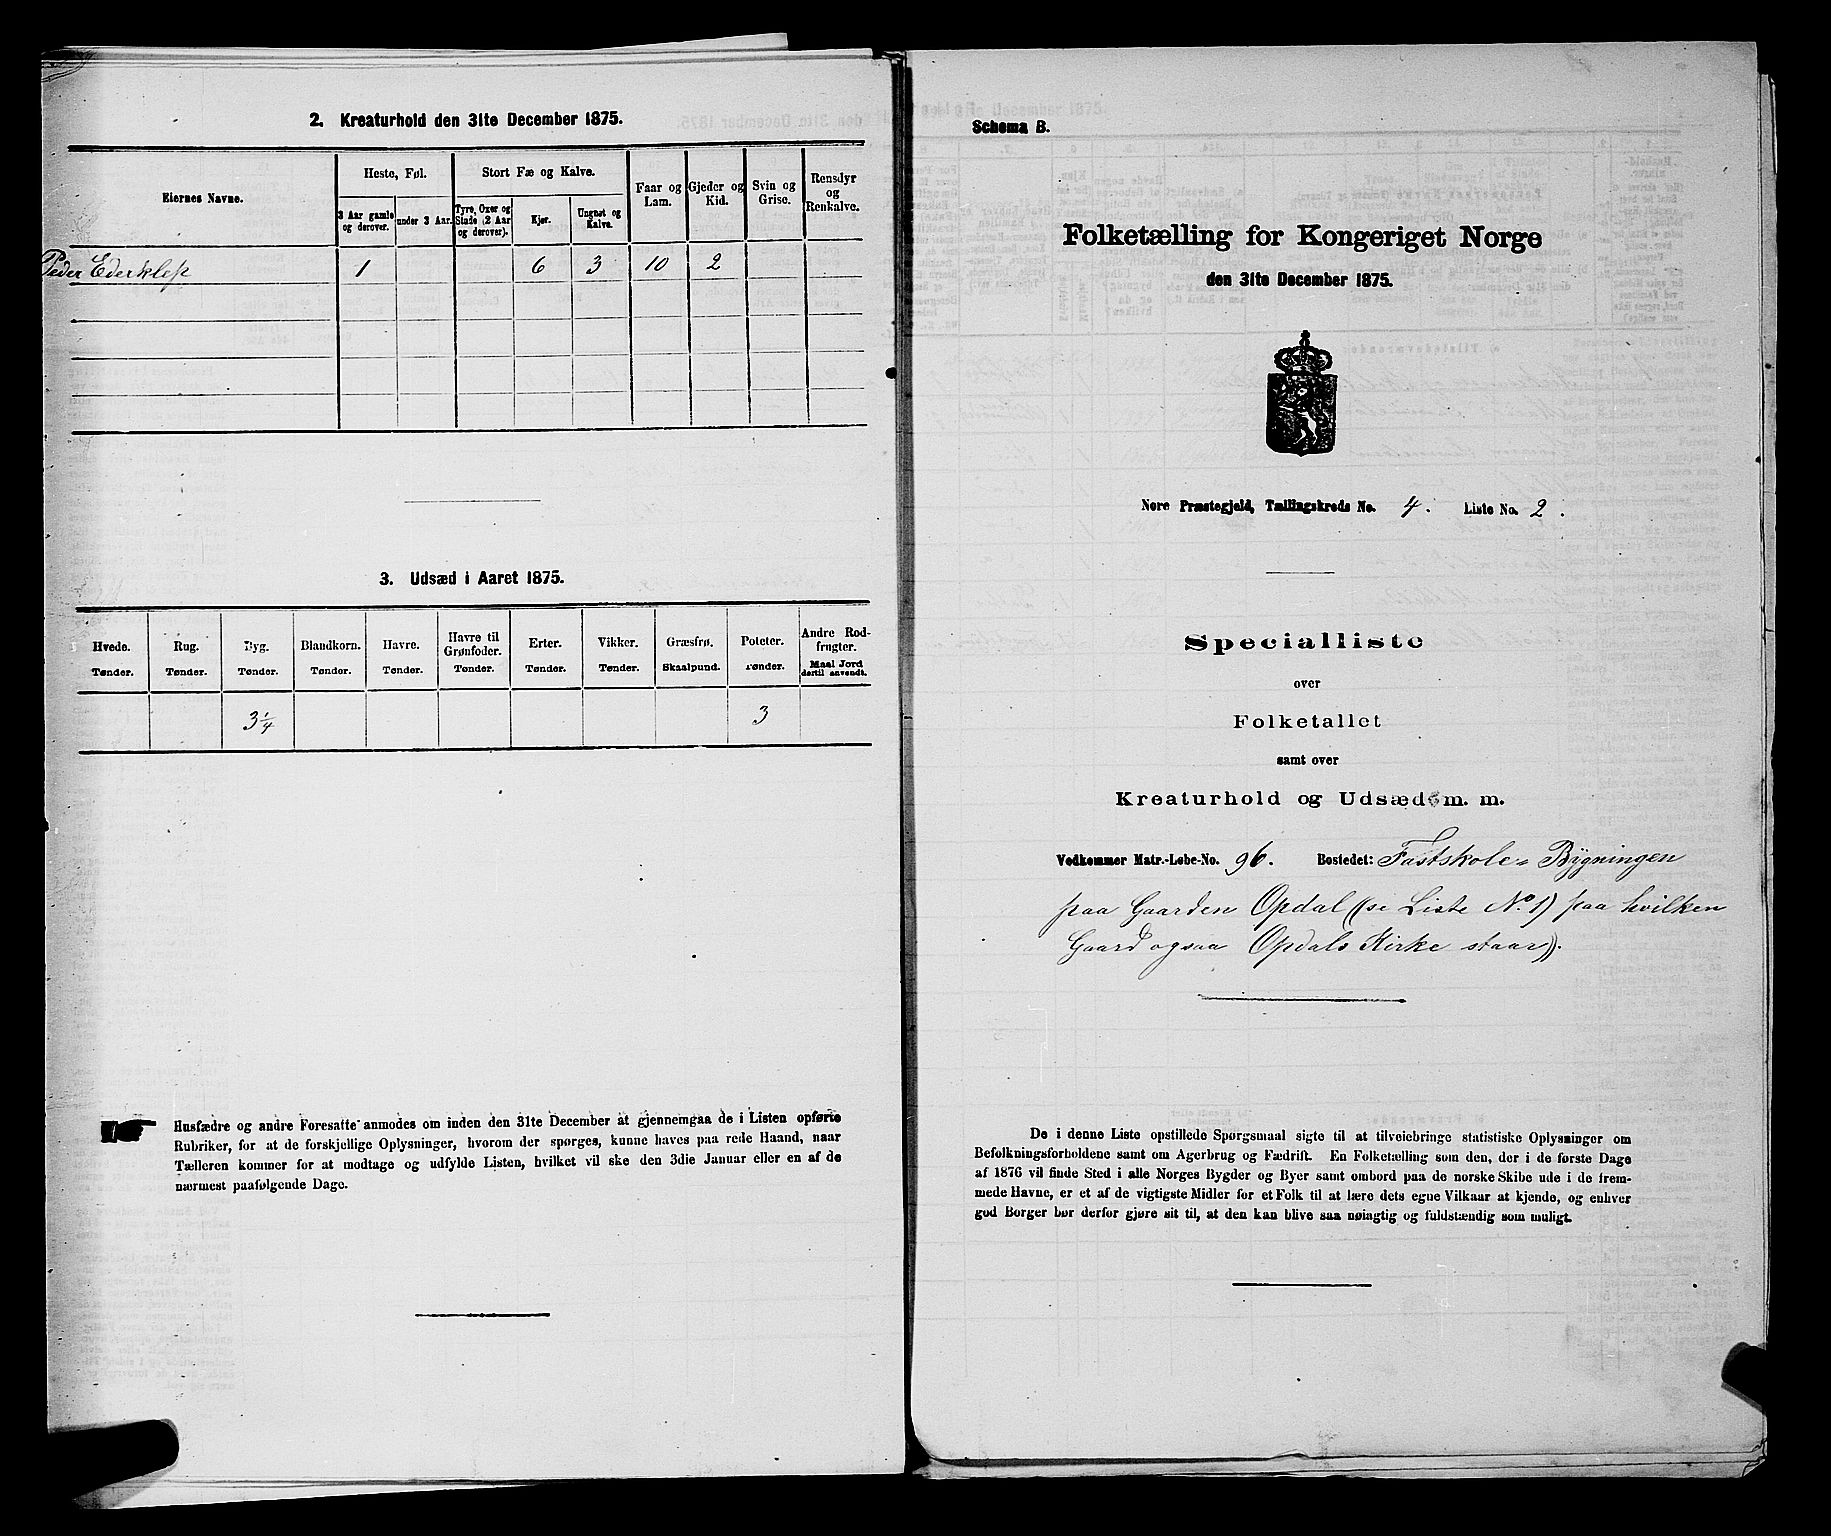 2. Kreaturhold den 31te December 1875.
Eiernes Navne.
Heste, Føl.
Stort Fæ og Kalve.
Faar og Lam.
Gjeder og Kid.
Svin og Grise.
Rensdyr og Renkalve.
3 Aar gamle og derover.
under 3 Aar.
Tyre, Oxer og Stude (2 Aar og derover).
Kjør.
Ungnøt og Kalve.
Peder Ederklep 1 6 3 10 2
3. Udsæd i Aaret 1875.
Hvede. Rug. Byg. Blandkorn. Havre. Havre til Grønfoder. Erter. Vikker. Græsfrø. Poteter. Andre Rodfrugter.
Tønder. Tønder. Tønder. Tønder. Tønder. Tønder. Tønder. Tønder. Skaalpund. Tønder. Maal Jord dertil anvendt.
3 1/4 3
Husfædre og andre Foresatte anmodes om inden den 31te December at gjennemgaa de i Listen opførte
Rubriker, for at de forskjellige Oplysninger, hvorom der spørges, kunne haves paa rede Haand, naar
Tælleren kommer for at modtage og udfylde Listen, hvilket vil ske den 3die Januar eller en af de
nærmest paafølgende Dage.
Schema B.
Folketælling for Kongeriget Norge
den 31te December 1875.
Nore Præstegjeld, Tællingskreds No. 4. Liste No. 2.
Specialliste
over
Folketallet
samt over
Kreaturhold og Udsæd m. m.
Vedkommer Matr.-Løbe-No. 96. Bostedet: Fastskole- Bygningen
paa Gaarden Opdal (se Liste No. 1) paa hvilken
Gaard ogsaa Opdals Kirke staar).
De i denne Liste opstillede Spørgsmaal sigte til at tilveiebringe statistiske Oplysninger om
Befolkningsforholdene samt om Agerbrug og Fædrift. En Folketælling som den, der i de første Dage
af 1876 vil finde Sted i alle Norges Bygder og Byer samt ombord paa de norske Skibe ude i de frem-
mede Havne, er et af de vigtigste Midler for et Folk til at lære dets egne Vilkaar at kjende, og enhver
god Borger bør derfor gjøre sit til, at den kan blive saa nøiagtig og fuldstændig som muligt.